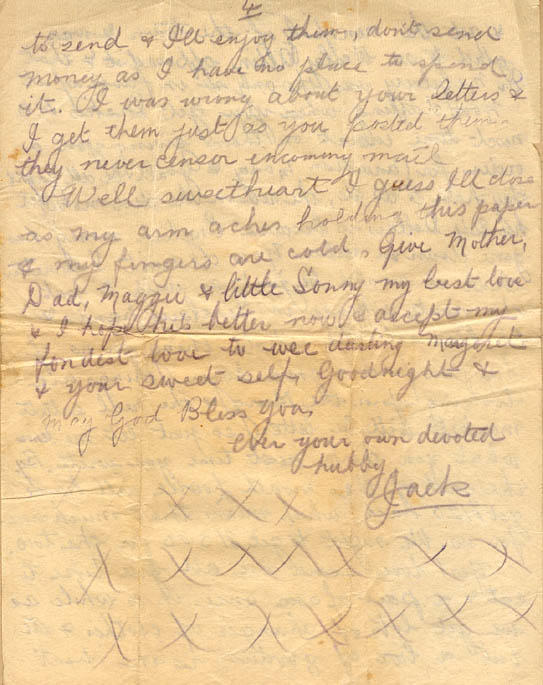 4
to send & I'll enjoy them, don't send
money as I have no place to spend
it. I was wrong about your letters &
I get them just as you posted them
they never censor incoming mail
Well sweetheart I guess I'll close
as my arm aches holding this paper
& my fingers are cold. Give Mother,
Dad, Maggie & little Sonny my best love
& I hope he's better now & accept my
fondest love to wee darling Margaret
& your sweet self, Goodnight &
may God Bless you,
Ever your own devoted
hubby
Jack
X X X X
X X X X X X X
X X X X X X X